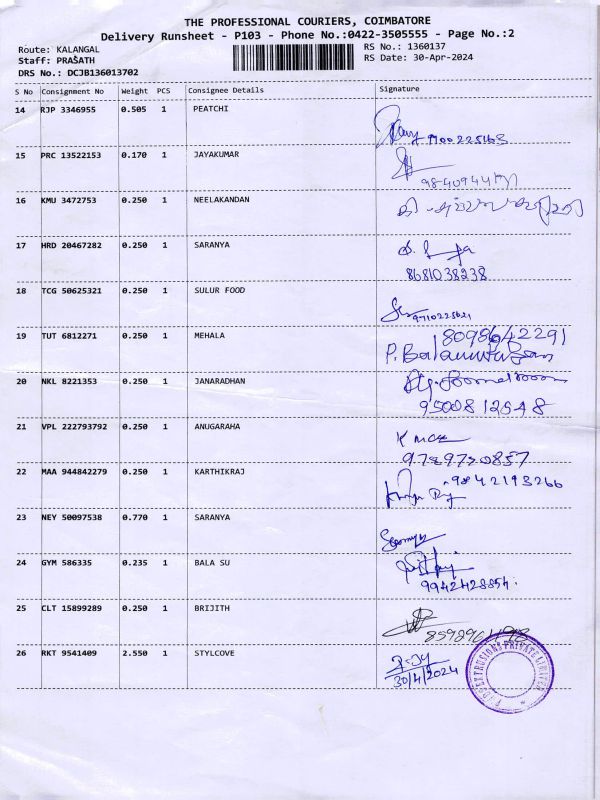 THE PROFESSIONAL COURIERS, COIMBATORE
Delivery Runsheet - P103 - Phone No.:0422-3505555 - Page No.:2
Route: KALANGAL
RS No.: 1360137
Staff: PRASATH
RS Date: 30-Apr-2024
DRS No.: DCJB136013702
S No Consignment No Weight PCS Consignee Details Signature
14 RJP 3346955 0.505 1 PEATCHI
15 PRC 13522153 0.170 1 JAYAKUMAR
16 KMU 3472753 0.250 1 NEELAKANDAN
17 HRD 20467282 0.250 1 SARANYA
8681038238
18 TCG 50625321 0.250 1 SULUR FOOD
19 TUT 6812271 0.250 1 MEHALA
8098642291
20 NKL 8221353 0.250 1 JANARADHAN
9500812548
21 VPL 222793792 0.250 1 ANUGARAHA
9789720857
22 MAA 944842279 0.250 1 KARTHIKRAJ
9842193266
23 NEY 50097538 0.770 1 SARANYA
24 GYM 586335 0.235 1 BALA SU
9942428854
25 CLT 15899289 0.250 1 BRIJITH
26 RKT 9541409 2.550 1 STYLCOVE
30/4/2024
EXTRUSIONS PRIVATE LIMITED